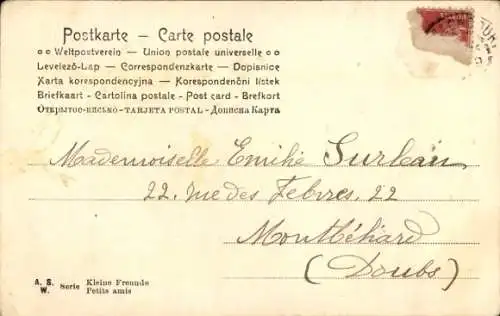 Postkarte – Carte postale
Weltpostverein – Union postale universelle
Levelező-Lap – Correspondenzkarte – Dopisnice
Karta korespondencyjna – Korespondenční lístek
Briefkaart – Cartolina postale – Post card – Brefkort
Открытое-письмо – TARJETA POSTAL – Дописна Карта
Mademoiselle Emilie Surleau
22, rue des Febvres. 22
Montbéliard
(Doubs)
A. S. W. Serie Kleine Freunde
Petits amis